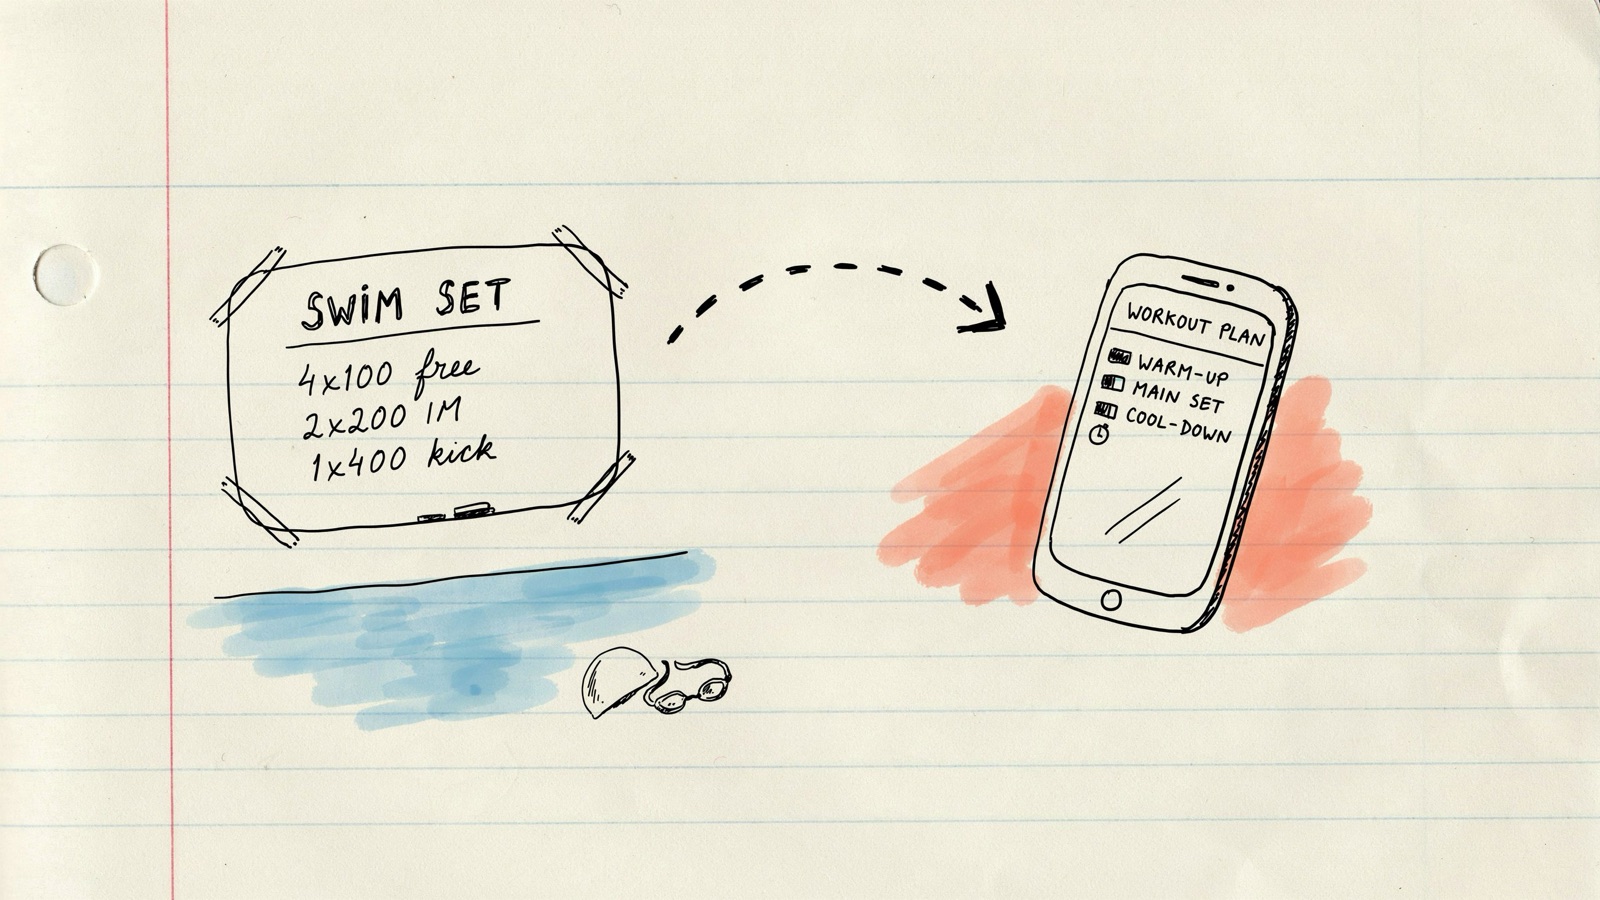 SWiM SET
4x100 free
2x200 IM
1x400 kick
WORKOUT PLAN
WARM-UP
MAIN SET
COOL-DOWN